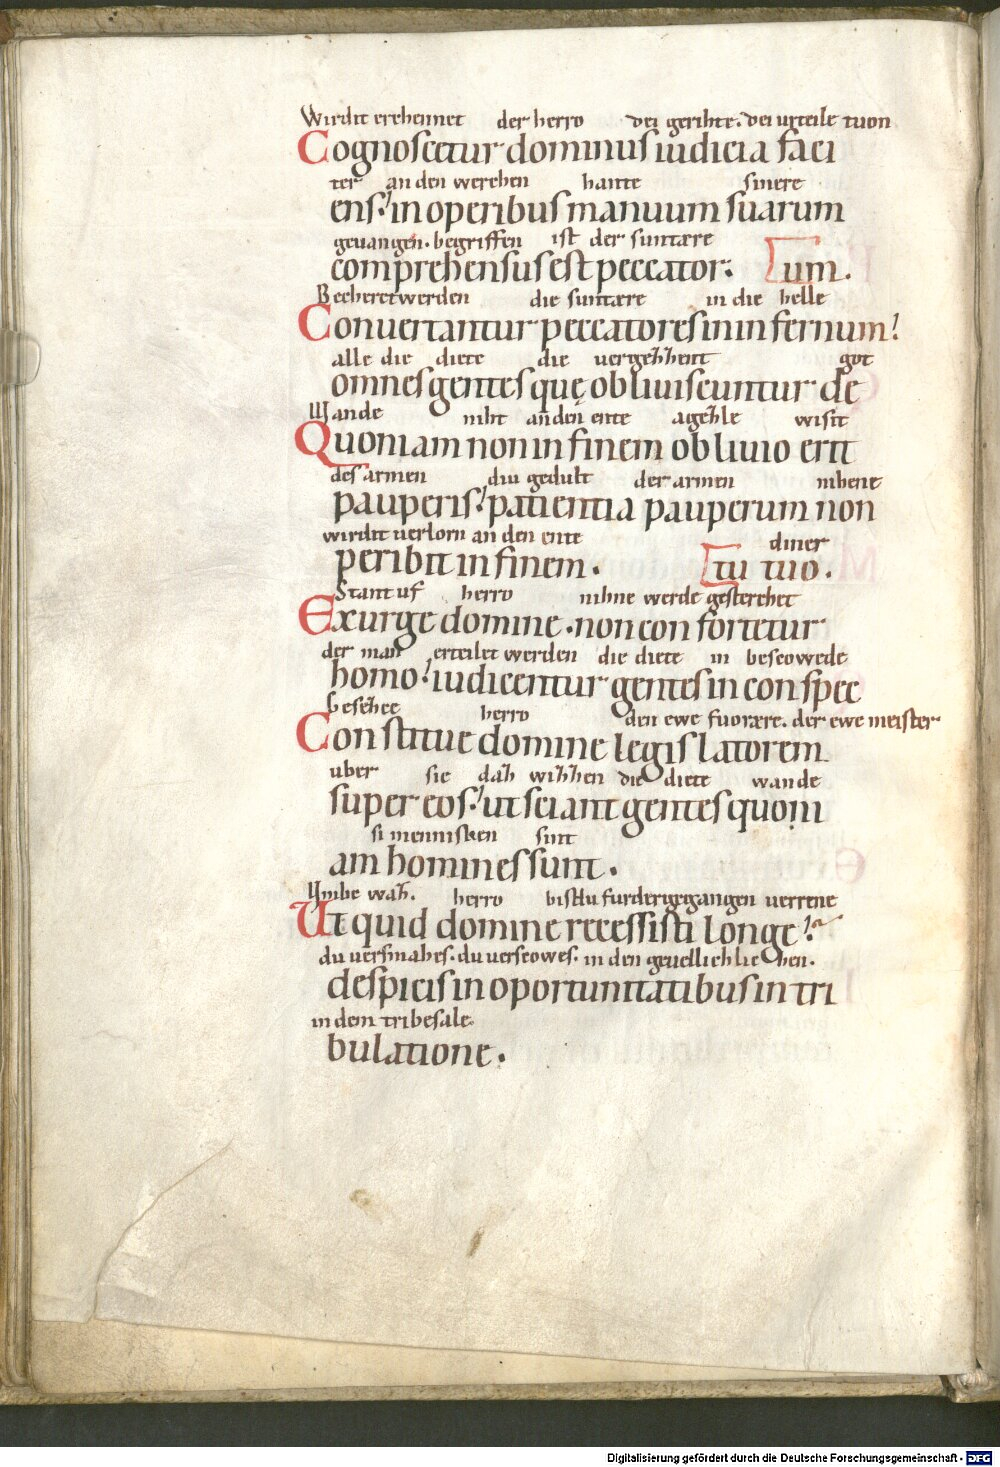 Wirdit erchennet der herro dei gerihte. dei urteile tuon
Cognoscetur dominus iudicia faci
ter an den werchen hante sinere
ens. in operibus manuum suarum
gevangen. begriffen ist der suntære
comprehensus est peccator. tum.
Becheret werden die suntære in die helle
Conuertantur peccatores in infernum
alle die diete die uergezzent got
omnes gentes quę obliuiscuntur de
Wande niht an den ente agezle wisit
Quoniam non in finem obliuio erit
des armen diu gedult der armen nihene
pauperis. patientia pauperum non
wirdit uerlorn an den ente diner
peribit in finem. tu tuo.
Stant uf herro nihne werde gesterchet
Exurge domine. non confortetur
der man erteilet werden die diete in bescowede
homo. iudicentur gentes in conspec
Gesezce herro den ewe fuorære. der ewe meister
Constitue domine legislatorem
uber sie daz wizzen die diete wande
super eos. ut sciant gentes quoni
si mennisken sint
am homines sunt.
Umbe waz. herro bistdu furder gegangen uerrene
Ut quid domine recessisti longe
du uersmahes. du uerscowes. in den geuellichlichen.
despicis in oportunitatibus in tri
in dem tribesale.
bulatione.
Digitalisierung gefördert durch die Deutsche Forschungsgemeinschaft - DFG